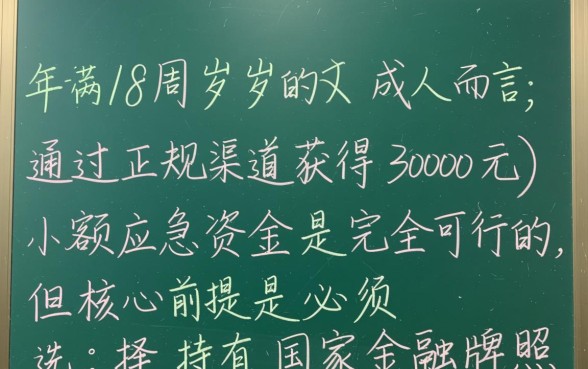 年满18周岁岁的文 成人而言;
通过正规渠道获得30000元)
小额应急资金是完全可行的,
但核心前提是必须
选:择 持有国家金融牌照